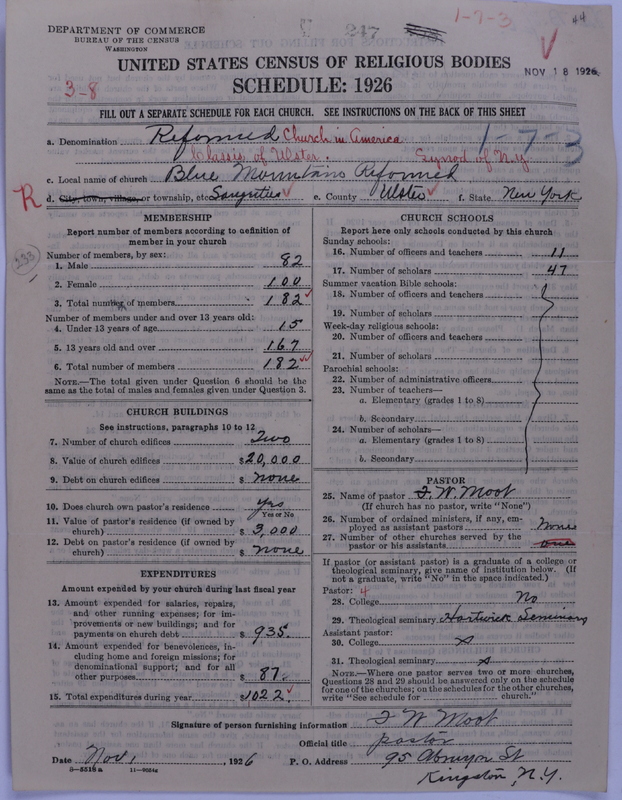 DEPARTMENT OF COMMERCE
BUREAU OF THE CENSUS
WASHINGTON
247
1-7-3
44
UNITED STATES CENSUS OF RELIGIOUS BODIES
NOV 18 1926
SCHEDULE: 1926
3-8
FILL OUT A SEPARATE SCHEDULE FOR EACH CHURCH. SEE INSTRUCTIONS ON THE BACK OF THIS SHEET
a. Denomination Reformed Church in America
1-7-3
Classis of Ulster. Synod of N.Y.
c. Local name of church Blue Mountain Reformed
R
d. City, town, village, or township, etc. Saugerties e. County Ulster f. State New York
MEMBERSHIP
Report number of members according to definition of
member in your church
233
Number of members, by sex:
1. Male 82
2. Female 100
3. Total number of members 182
Number of members under and over 13 years old:
4. Under 13 years of age 15
5. 13 years old and over 167
6. Total number of members 182
NOTE.—The total given under Question 6 should be the
same as the total of males and females given under Question 3.
CHURCH BUILDINGS
See instructions, paragraphs 10 to 12
7. Number of church edifices Two
8. Value of church edifices $20,000
9. Debt on church edifices $ none
10. Does church own pastor's residence yes
Yes or No
11. Value of pastor's residence (if owned by
church) $ 3,000
12. Debt on pastor's residence (if owned by
church) $ none
EXPENDITURES
Amount expended by your church during last fiscal year
13. Amount expended for salaries, repairs,
and other running expenses; for im-
provements or new buildings; and for
payments on church debt $ 935
14. Amount expended for benevolences, in-
cluding home and foreign missions; for
denominational support; and for all
other purposes $ 87
15. Total expenditures during year $1022
CHURCH SCHOOLS
Report here only schools conducted by this church
Sunday schools:
16. Number of officers and teachers 11
17. Number of scholars 47
Summer vacation Bible schools:
18. Number of officers and teachers
19. Number of scholars
Week-day religious schools:
20. Number of officers and teachers
21. Number of scholars
Parochial schools:
22. Number of administrative officers
23. Number of teachers—
a. Elementary (grades 1 to 8)
b. Secondary
24. Number of scholars—
a. Elementary (grades 1 to 8)
b. Secondary
PASTOR
25. Name of pastor F. W. Moot
(If church has no pastor, write "None")
26. Number of ordained ministers, if any, em-
ployed as assistant pastors None
27. Number of other churches served by the
pastor or his assistants one
If pastor (or assistant pastor) is a graduate of a college or
theological seminary, give name of institution below. (If
not a graduate, write "No" in the space indicated.)
Pastor: 4
28. College No
29. Theological seminary Hartwick Seminary
Assistant pastor:
30. College x
31. Theological seminary x
NOTE.—Where one pastor serves two or more churches,
Questions 28 and 29 should be answered only on the schedule
for one of the churches; on the schedules for the other churches,
write "See schedule for church."
Signature of person furnishing information F W Moot
Official title pastor
Date Nov, 1926 P. O. Address 95 St
8-5518a 11-9024a
Kingston, N.Y.